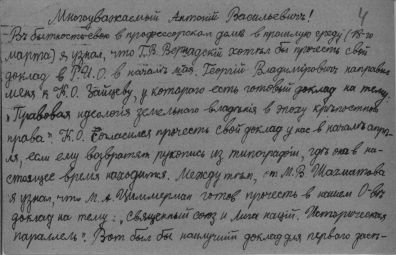 4
Многоуважаемый Антоній Васильевичъ!
Въ бытность свою въ профессорскомъ домѣ въ прошлую среду (18-го
марта) я узналъ, что Г.В. Вернадскій хотѣлъ бы прочесть свой
докладъ въ Р.И.О. въ началѣ мая. Георгій Владиміровичъ направилъ
меня к К.О. Зайцеву, у котораго есть готовый докладъ на тему:
„Правовая идеологія земельнаго владѣнія въ эпоху крѣпостного
права". К.О. согласился прочесть свой докладъ у насъ въ началѣ апрѣ-
ля, если ему возвратятъ рукопись изъ типографіи, гдѣ она въ на-
стоящее время находится. Между тѣмъ, отъ М.В. Шахматова
я узналъ, что М.А. Циммерманъ готовъ прочесть въ нашемъ О-вѣ
докладъ на тему: „Священный союз и Лига націй. Историческая
параллель". Вотъ былъ бы наилучшій докладъ для перваго засѣ-